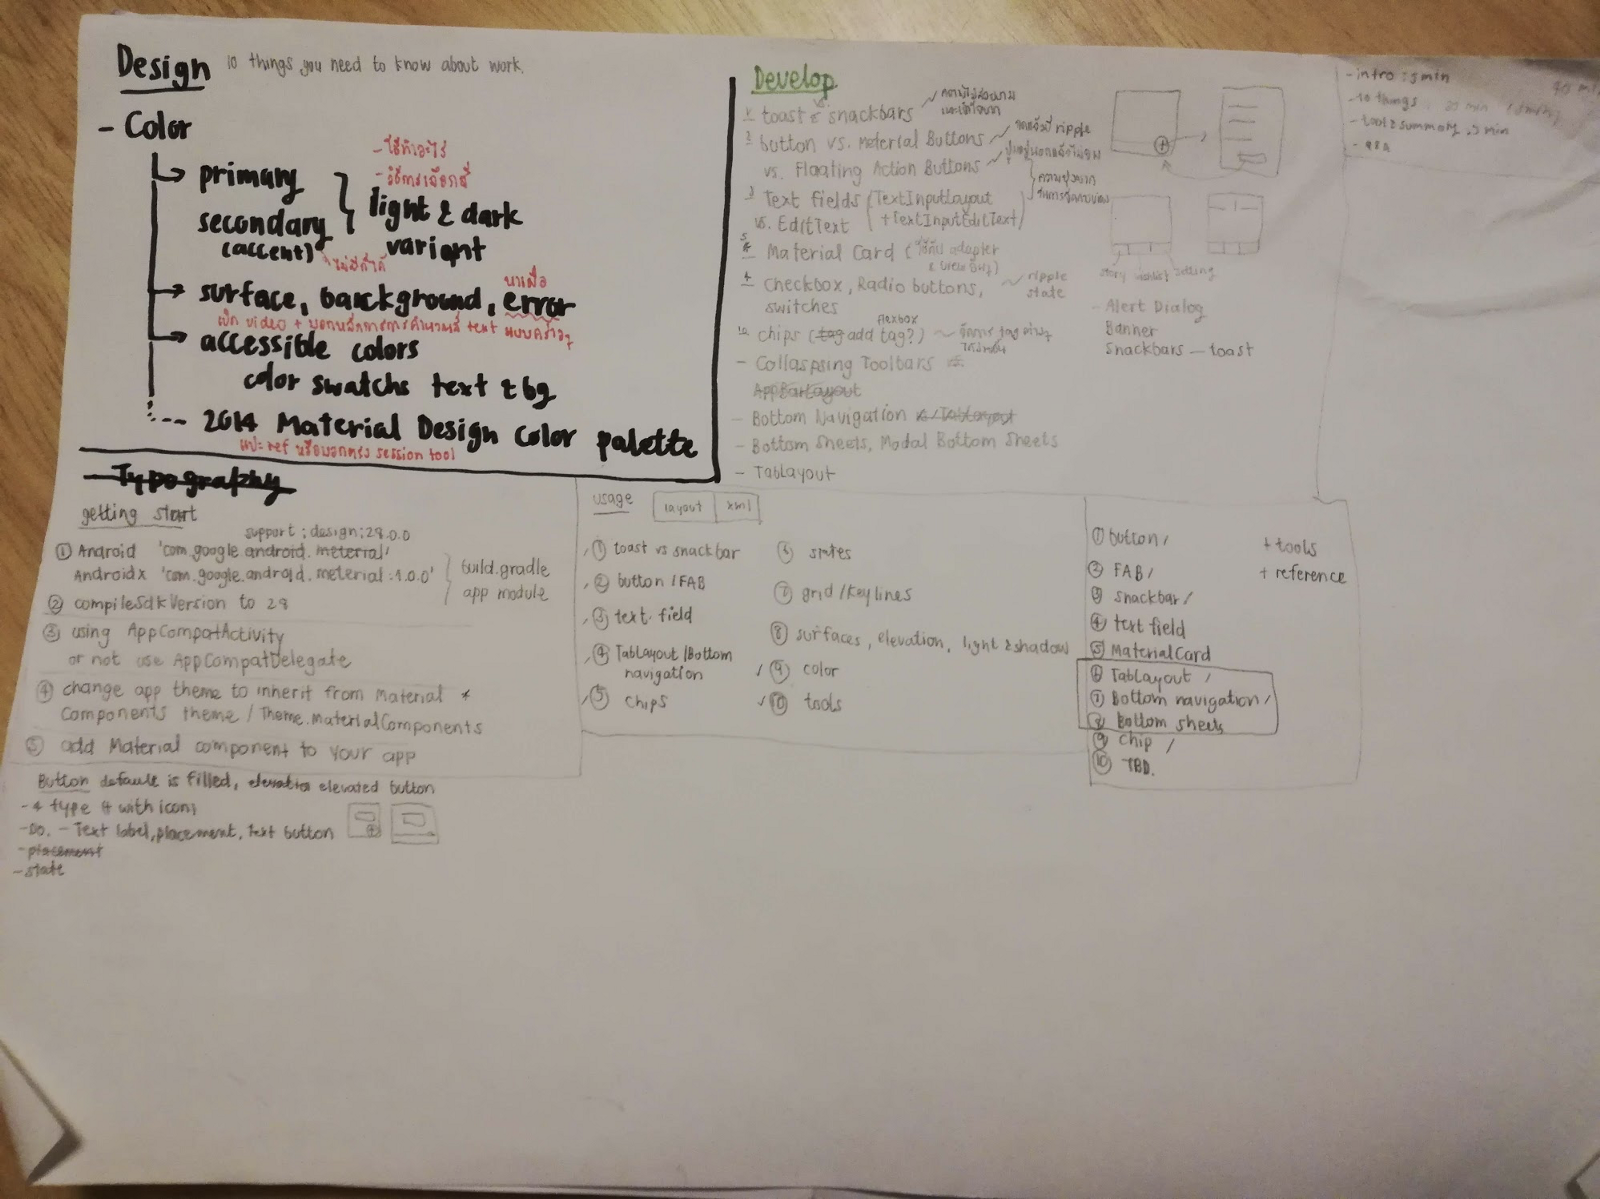 Design 10 things you need to know about work.
- Color
primary
secondary
(accent)
light & dark
variant
- ใช้ทำอะไร
- วิธีการเลือกสี
ไม่มีก็ได้
surface, background, error
accessible colors
color swatchs text & bg
2014 Material Design Color palette
session tool
Typography
getting start
support : design : 28.0.0
① Android 'com.google.android.meterial'
Androidx 'com.google.android.meterial:1.0.0'
build.gradle
app module
② compileSdkVersion to 28
③ using AppCompatActivity
or not use AppCompatDelegate
④ change app theme to inherit from Material
Components theme / Theme.MaterialComponents
⑤ add Material component to your app
Button default is filled, elevated button
- 4 type (+ with icon)
- Do. - Text label, placement, text button
- placement
- state
Develop
toast & snackbars
button vs. Meterial Buttons
vs. Floating Action Buttons
ripple
Text fields (TextInputLayout
vs. EditText + TextInputEditText)
Material Card (ใช้กับ adapter
Checkbox, Radio buttons,
switches
ripple
state
flexbox
chips (tag add tag?)
- Collaspsing Toolbars
AppBarLayout
- Bottom Navigation & / TabLayout
- Bottom Sheets, Modal Bottom Sheets
- TabLayout
- Alert Dialog
Banner
Snackbars - toast
- intro : 5 min
- 10 things : 30 min
- tool & summary : 5 min
- Q&A
usage
layout xml
① toast vs snackbar
② button / FAB
③ text field
④ TabLayout / Bottom
navigation
⑤ chips
⑥ states
⑦ grid / keylines
⑧ surfaces, elevation, light & shadow
⑨ color
⑩ tools
① button /
② FAB /
③ snackbar /
④ text field
⑤ MaterialCard
⑥ TabLayout /
⑦ Bottom navigation /
⑧ Bottom sheets
⑨ chip /
⑩ TBD.
+ tools
+ reference